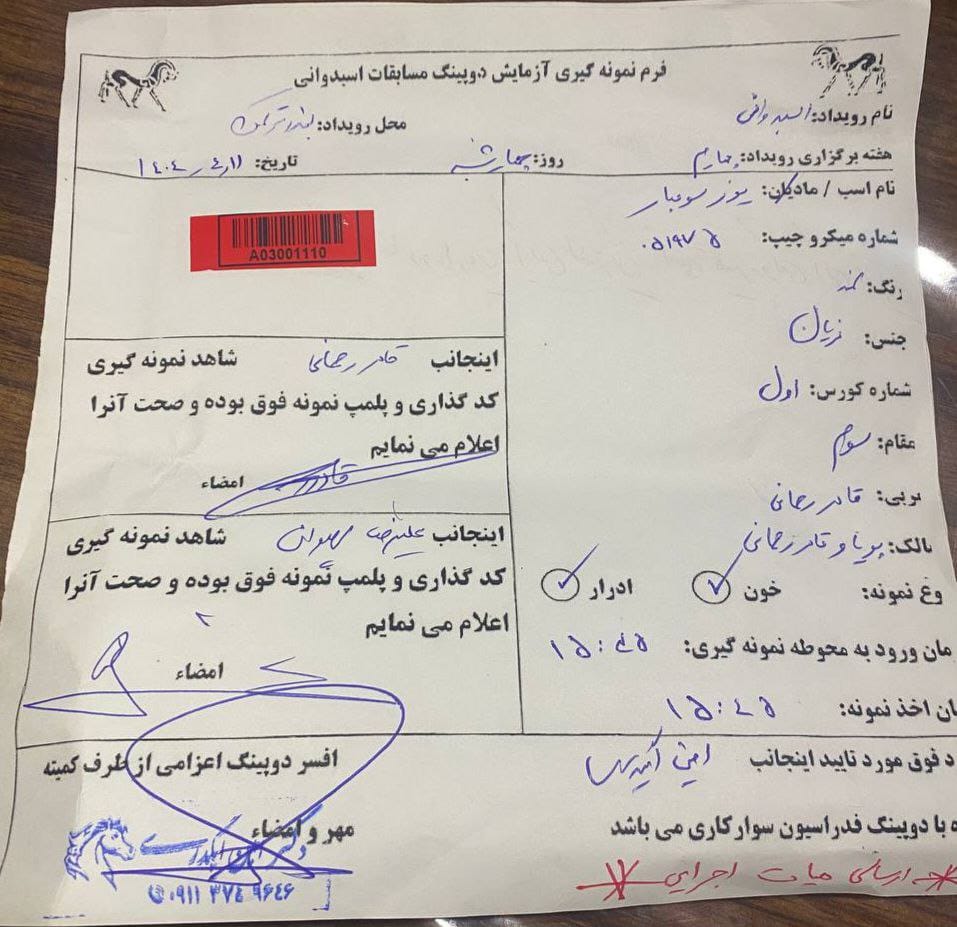 فرم نمونه گیری آزمایش دوپینگ مسابقات اسبدوانی
نام رویداد: اسبدوانی
محل رویداد: بندر ترکمن
هفته برگزاری رویداد: چهارم
روز: چهارشنبه
تاریخ: ۱۴۰۴ـ۴ـ۱۱
نام اسب / مادیان:
شماره میکرو چیپ: ۰۵۱۹۷۵
رنگ:
جنس: نریان
شماره کورس: اول
مقام: سوم
ربی: قادر رحمانی
الک: پویا و قادر رحمانی
وع نمونه: خون ✓ ادرار ✓
مان ورود به محوطه نمونه گیری: ۱۵:۴۵
ان اخذ نمونه: ۱۵:۴۵
A03001110
اینجانب قادر رحمانی شاهد نمونه گیری
کد گذاری و پلمپ نمونه فوق بوده و صحت آنرا
اعلام می نمایم
امضاء
اینجانب علیرضا شاهد نمونه گیری
کد گذاری و پلمپ نمونه فوق بوده و صحت آنرا
اعلام می نمایم
امضاء
د فوق مورد تایید اینجانب
ه با دوپینگ فدراسیون سوارکاری می باشد
ارسالی هیات اجرایی
افسر دوپینگ اعزامی از طرف کمیته
مهر و امضاء
۰۹۱۱ ۳۷۴ ۹۶۴۶